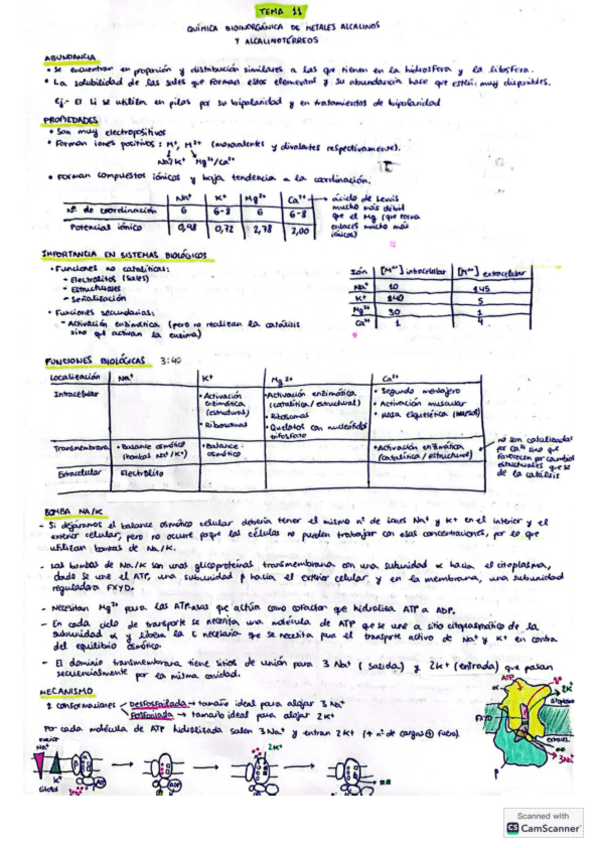 TEMA 11
QUÍMICA BIOINORGÁNICA DE METALES ALCALINOS
Y ALCALINOTÉRREOS
ABUNDANCIA
• Se encuentran en proporción y distribución similares a las que tienen en la hidrosfera y la litosfera.
• La solubilidad de las sales que forman estos elementos y su abundancia hace que estén muy disponibles.
Ej.- El Li se utiliza en pilas por su bipolaridad y en tratamientos de bipolaridad
PROPIEDADES
• Son muy electropositivos
• Forman iones positivos: M+, M2+ (monovalentes y divalentes respectivamente).
Na+/K+ Mg2+/Ca2+
• Forman compuestos iónicos y baja tendencia a la coordinación.
Na+ K+ Mg2+ Ca2+ → ácido de Lewis
mucho más débil
que el Mg (que forma
enlaces mucho más
iónicos)
Nº de coordinación 6 6-8 6 6-8
Potencial iónico 0,98 0,72 2,78 2,00
IMPORTANCIA EN SISTEMAS BIOLÓGICOS
• Funciones no catalíticas:
- Electrolitos (sales)
- Estructurales
- Señalización
• Funciones secundarias:
- Activación enzimática (pero no realizan la catálisis
sino que activan la enzima)
Ión [Mn+] intracelular [Mn+] extracelular
Na+ 10 145
K+ 140 5
Mg2+ 30 1
Ca2+ 1 4
FUNCIONES BIOLÓGICAS 3:40
Localización Na+ K+ Mg2+ Ca2+
Intracelular
• Activación enzimática (estructural)
• Ribosomas
• Activación enzimática (catalítica/estructural)
• Ribosomas
• Quelatos con nucleótidos trifosfato
• Segundo mensajero
• Activación muscular
• Masa esquelética (huesos)
Transmembrana • Balance osmótico (bombas Na+/K+) • Balance osmótico • Activación enzimática (catalítica/estructural)
→ no son catalizadas
por Ca2+ sino que
favorecen por cambios
estructurales que se
de la catálisis
Extracelular Electrolito
BOMBA NA/K
- Si dejáramos el balance osmótico celular debería tener el mismo nº de iones Na+ y K+ en el interior y el
exterior celular, pero no ocurre porque las células no pueden trabajar con esas concentraciones, por lo que
utilizan bombas de Na/K.
- Las bombas de Na/K son una glicoproteínas transmembrana con una subunidad α hacia el citoplasma,
donde se une el ATP, una subunidad β hacia el exterior celular y en la membrana, una subunidad
reguladora FXYD.
- Necesitan Mg2+ para las ATPasas que actúan como cofactor que hidroliza ATP a ADP.
- En cada ciclo de transporte se necesita una molécula de ATP que se une a sitio citoplasmático de la
subunidad α y libera la E necesaria que se necesita para el transporte activo de Na+ y K+ en contra
del equilibrio osmótico.
- El dominio transmembrana tiene sitios de unión para 3 Na+ (salida) y 2K+ (entrada) que pasan
secuencialmente por la misma cavidad.
MECANISMO
2 conformaciones
Desfosforilada → tamaño ideal para alojar 3 Na+
Fosforilada → tamaño ideal para alojar 2K+
Por cada molécula de ATP hidrolizada salen 3Na+ y entran 2K+ (↑ nº de cargas ⊕ fuera).
ATP
α
2K+
FXYD
3Na+
β
Na+
K+
2K+
Scanned with
CS CamScanner